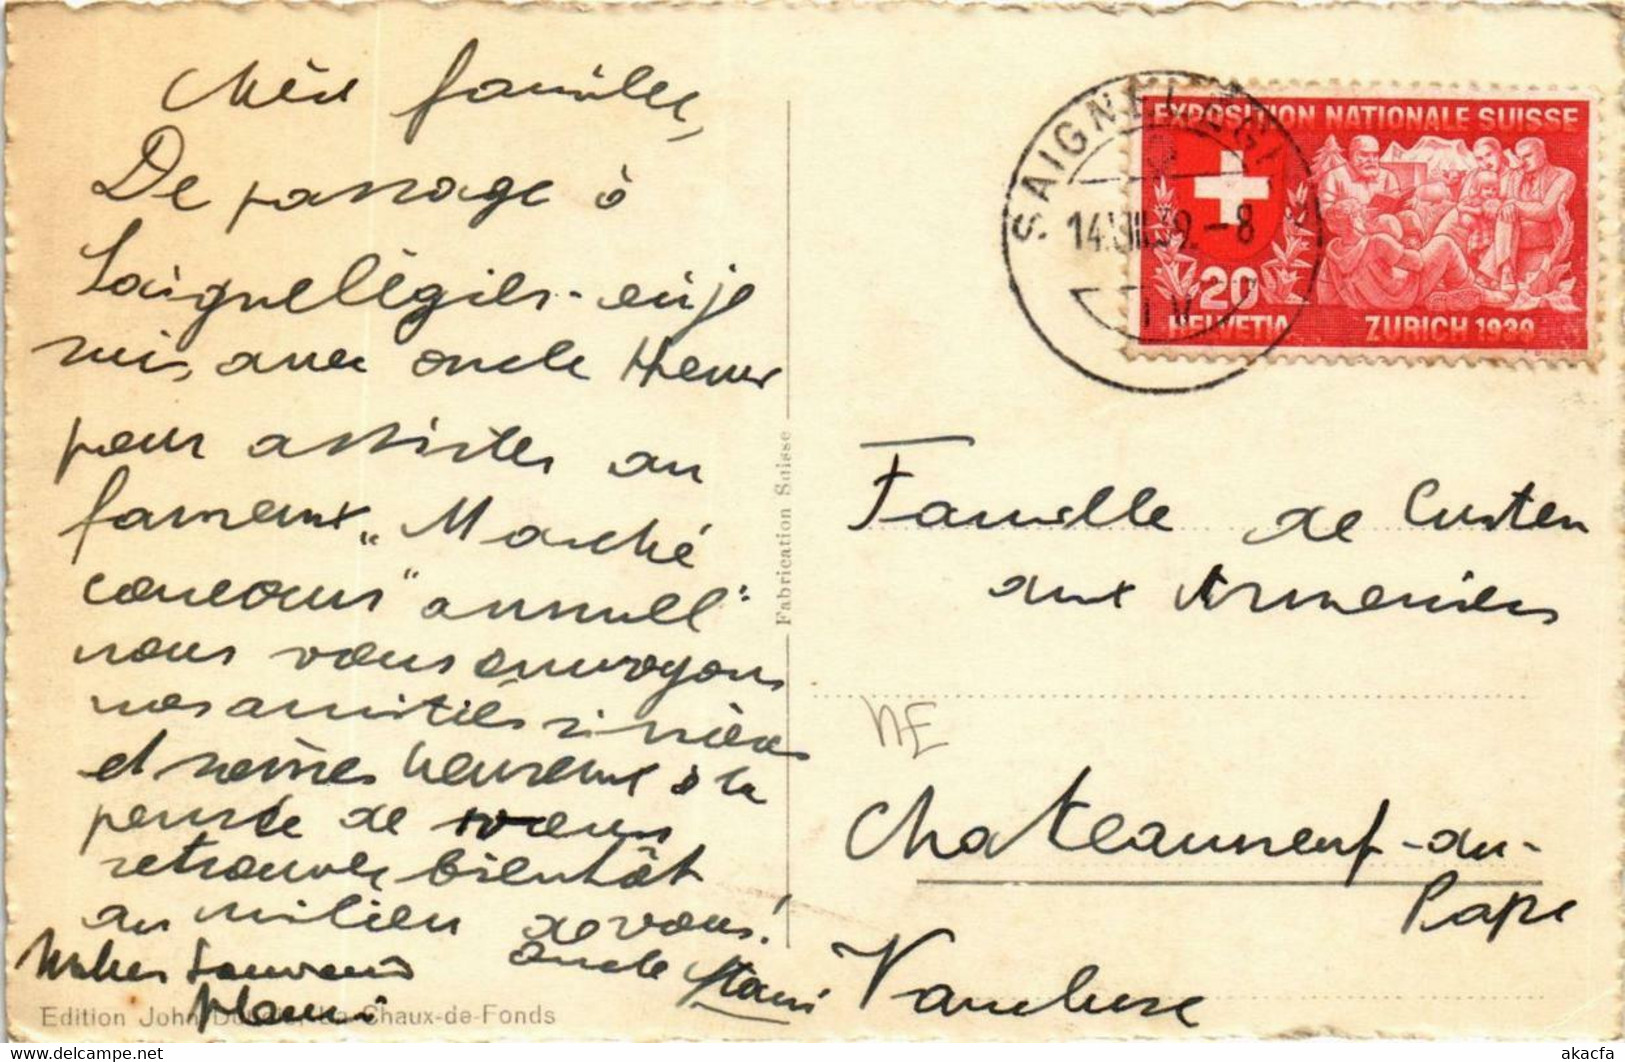 Chère famille,
De passage à
Saignelégier - où je
suis, avec oncle Henri
pour assister au
fameux „Marché
concours" annuel"
nous vous envoyons
nos amitiés sincères
et sommes heureux à la
pensée de vous
retrouver bientôt
au milieu de vous!
oncle
Edition John Chaux-de-Fonds
Fabrication Suisse
SAIGNELEGI
14.VIII.39.-8
EXPOSITION NATIONALE SUISSE
20
HELVETIA ZURICH 1939
Famille de Custen
aux Armeniers
NE
Chateauneuf-du-
Pape
Vaucluse
akacfa